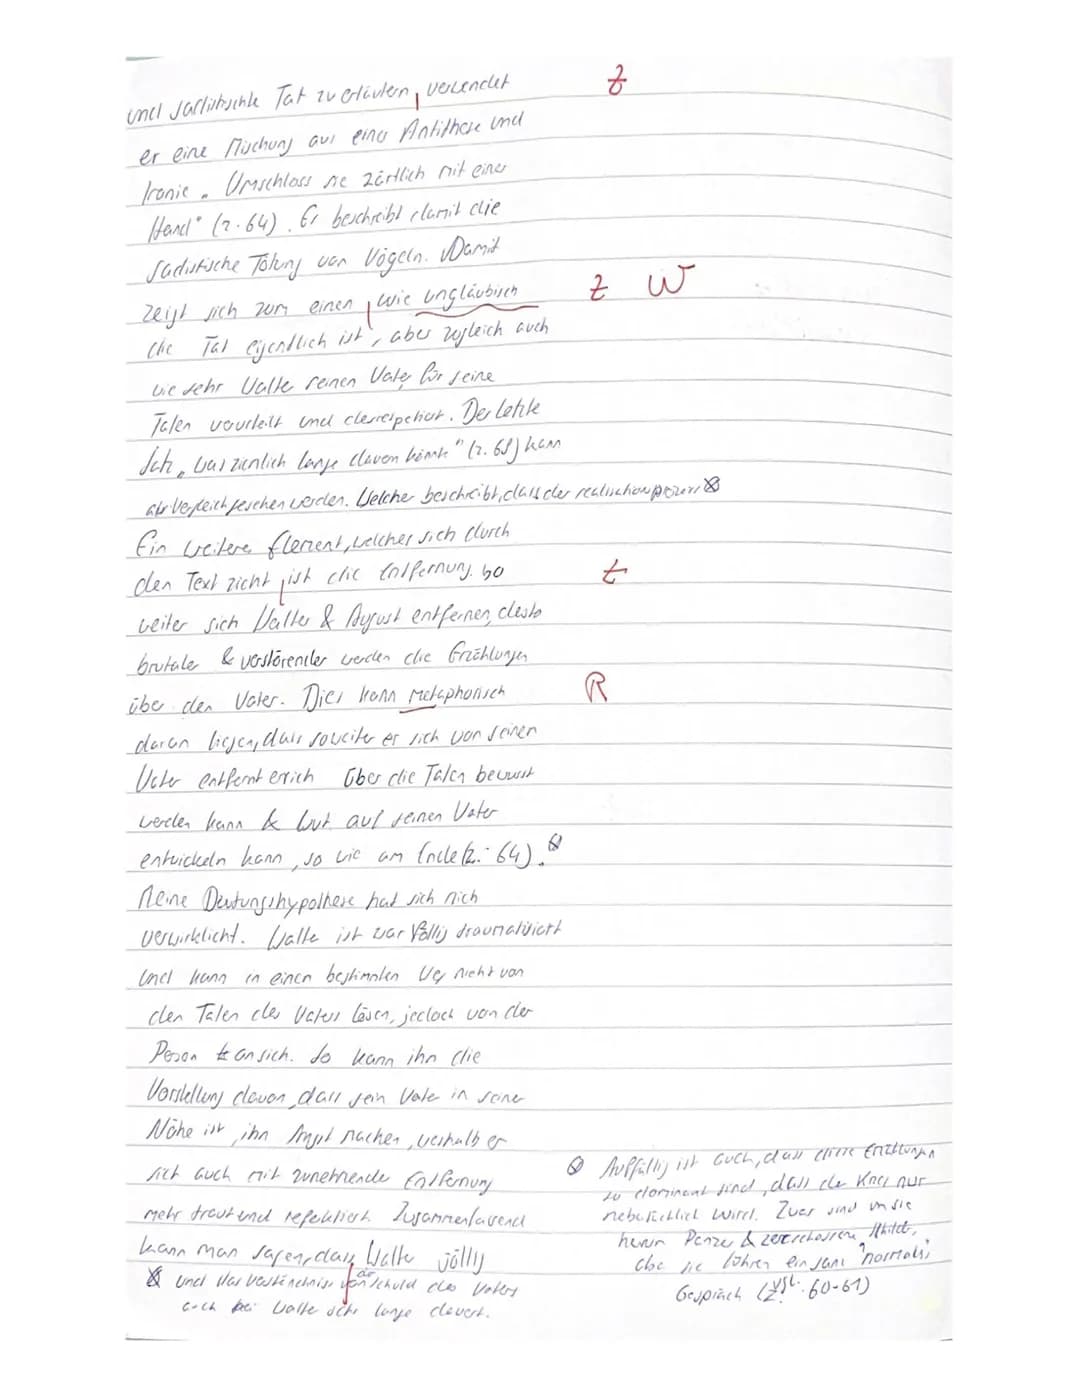 und sadistische Tat zu erläutern, verwendet Z
er eine Mischung aus einer Antithese und
Ironie „Umschloss sie zärtlich mit einer
Hand" (Z. 64). Er beschreibt damit die
sadistische Tötung von Vögeln. Damit
zeigt sich zum einen, wie ungläubisch Z W
die Tat eigentlich ist, aber zugleich auch
wie sehr Walte seinen Vater für seine
Taten verurteilt und
Der letzte
Satz „was ziemlich lange davon könnte" (Z. 68) kann
als Vergleich gesehen werden. Welcher beschreibt, dass der
Ein weitere Element, welches sich durch
den Text zieht, ist die Entfernung. So Z
weiter sich Walter & August entfernen, desto
brutaler & verstörender werden die Erzählungen
über den Vater. Dies kann metaphorisch R
daran liegen, dass soweiter er sich von seinen
Vater entfernt er sich über die Taten bewusst
werden kann & Wut auf seinen Vater
entwickeln kann, so wie am Ende (Z. 64).
Meine Deutungshypothese hat sich nich
verwirklicht. Walte ist zwar völlig traumatisiert
und kann in einen bestimmten Weg nicht von
den Taten des Vaters lösen, jedoch von der
Person an sich. So kann ihn die
Vorstellung davon, dass sein Vater in seiner
Nähe ist, ihn Angst machen, weshalb er
sich auch mit zunehmende Entfernung
mehr traut und reflektiert. Zusammenfassend
kann man sagen, dass Walter völlig
und das Verständniss der Schuld des Vaters
auch bei Walte sehr lange dauert.
Auffällig ist auch, dass diese Erzählungen
so dominant sind, dass der Krieg nur
nebensächlich wird. Zwar sind um sie
herum Panzer & zerschossene
aber sie führen ein ganz "normales"
Gespräch (vgl. Z. 60-61)